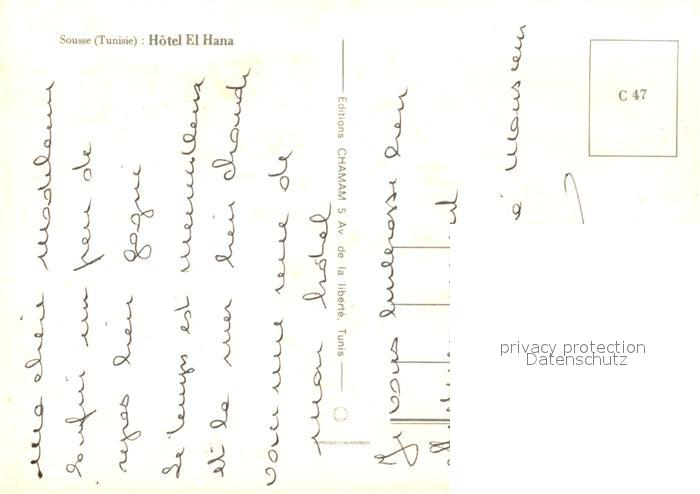 Sousse (Tunisie) : Hôtel El Hana
C 47
Editions CHAMAM 5 Av. de la liberté. Tunis
REPRODUCTION INTERDITE
Ma chère Madeleine
Enfin un peu de
repos bien gagné
Le temps est merveilleux
et la mer bien chaude
Voici une vue de
mon hôtel
Je vous embrasse bien
à Monsieur
privacy protection
Datenschutz